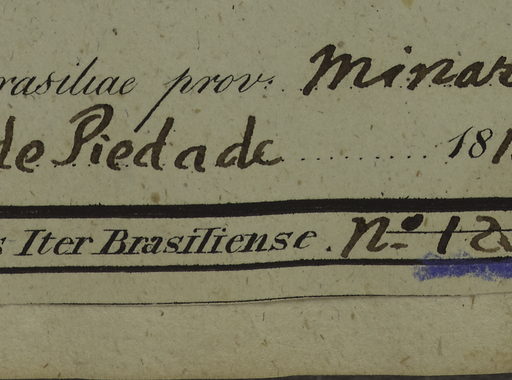 rasiliae prov. Minar
de Piedade ............ 181
s Iter Brasiliense. No. 12